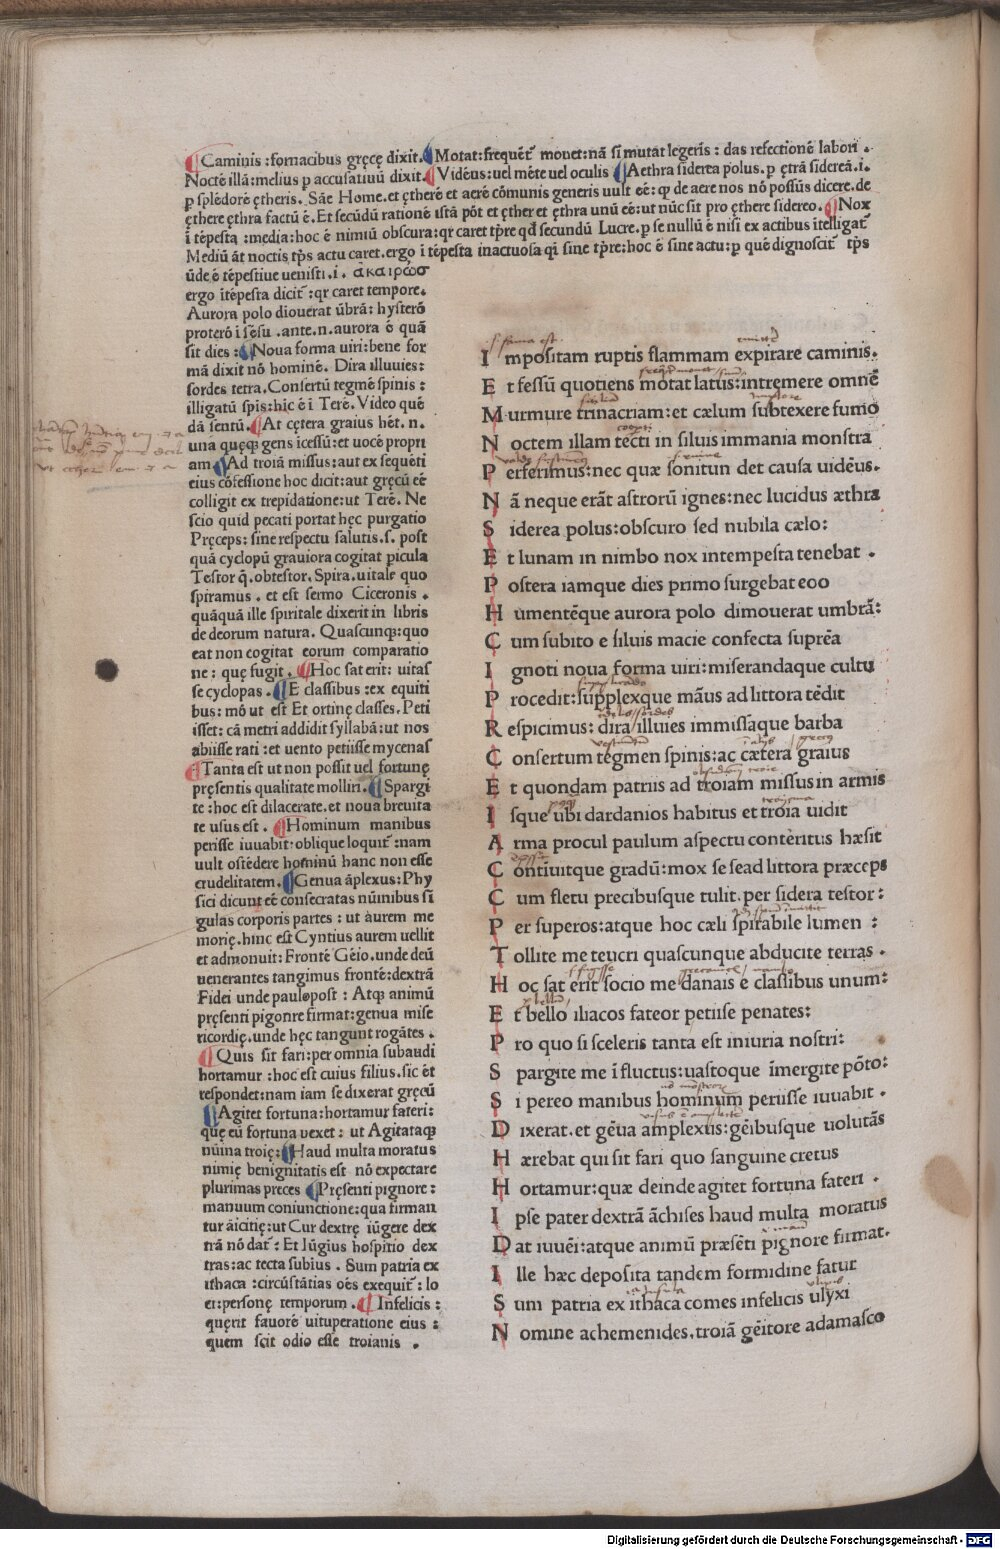 Caminis :fornacibus gręcę dixit. Motat: frequēt᷑ mouet: nā si mutat legeris : das refectionē labori .
Noctē illā: melius p accusatiuū dixit. Vidēus: uel mēte uel oculis Aethra siderea polus. p ętrā siderea .i.
p splēdorē ętheris. Sāe Home. et ęthere et aere cōmunis generis uult eē: qꝫ de aere nos nō possūs dicere. de
ęthere ęthra factū ē. Et secūdū rationē istā pōt et ęther et ęthra unū eē: ut nūc sit pro ęthere sidereo. Nox
ī tēpesta : media: hoc ē nimiū obscura: qr caret tp̄re qd̄ secundū Lucre. p se nullū ē nisi ex actibus ītelligat᷑
Mediū āt noctis tp̄s actu caret. ergo ī tēpesta inactuosa qi sine tp̄re: hoc ē sine actu: p quē dignoscit᷑ tp̄s
ūde ē tēpestiue uenisti .i. ἀκαιρῶσ
ergo ītēpesta dicit᷑ : qr caret tempore.
Aurora polo diouerat ūbrā: hysterō
proterō ī sēsu . ante. n. aurora ē quā
sit dies : Noua forma uiri: bene for
mā dixit nō hominē. Dira illuuies:
sordes tetra. Consertū tegmē spinis :
illigatū spis: hic ē ī Terē. Video quē
dā sentū. At cętera graius hēt. n.
una quęqꝫ gens īcessū: et uocē propri
am Ad troiā missus: aut ex sequēti
eius cōfessione hoc dicit: aut gręcū eē
colligit ex trepidatione: ut Terē. Ne
scio quid pecati portat hęc purgatio
Pręceps: sine respectu salutis. s. post
quā cyclopū grauiora cogitat picula
Testor q̄. obtestor. Spira. uitale quo
spiramus . et est sermo Ciceronis .
quāquā ille spiritale dixerit in libris
de deorum natura. Quascunqꝫ: quo
eat non cogitat eorum comparatio
ne : quę fugit . Hoc sat erit: uitas
se cyclopas. E classibus : ex equiti
bus: mō ut est Et ortinę classes. Peti
isset: cā metri addidit syllabā: ut nos
abiisse rati : et uento petiisse mycenas
Tanta est ut non possit uel fortunę
pręsentis qualitate molliri. Spargi
te : hoc est dilacerate. et noua breuita
te usus est . Hominum manibus
perisse iuuabit: oblique loquit᷑ : nam
uult ostēdere hominū hanc non esse
crudelitatem. Genua āplexus: Phy
sici dicunt eē consecratas nūinibus sī
gulas corporis partes : ut aurem me
morię. hinc est Cyntius aurem uellit
et admonuit: Frontē Gēio. unde deū
uenerantes tangimus frontē: dextrā
Fidei unde paulopost : Atqꝫ animū
pręsenti pigonre firmat: genua mise
ricordię. unde hęc tangunt rogātes .
Quis sit fari: per omnia subaudi
hortamur : hoc est cuius filius. sic et
respondet: nam iam se dixerat gręcū
Agitet fortuna: hortamur fateri:
quę eū fortuna uexet : ut Agitataqꝫ
nūina troię: Haud multa moratus
nimię benignitatis est nō expectare
plurimas preces Pręsenti pignore :
manuum coniunctione: qua firman
tur āicitię: ut Cur dextrę iūgere dex
trā nō dat᷑ : Et Iūgius hospitio dex
tras: ac tecta subius . Sum patria ex
ithaca : circūstātias oēs exequit᷑ : lo
ci: personę temporum . Infelicis :
quęrit fauorē uituperatione eius :
quem scit odio esse troianis .
I mpositam ruptis flammam expirare caminis.
E t fessū quotiens motat latus: intremere omnē
M urmure trinacriam: et cælum subtexere fumo
N octem illam tecti in siluis immania monstra
P erferimus: nec quæ sonitun det causa uidēus.
N ā neque erāt astrorū ignes: nec lucidus æthra
S iderea polus: obscuro sed nubila cælo:
E t lunam in nimbo nox intempesta tenebat .
P ostera iamque dies primo surgebat eoo
H umentēque aurora polo dimouerat umbrā:
C um subito e siluis macie confecta suprēa
I gnoti noua forma uiri: miserandaque cultu
P rocedit: supplexque māus ad littora tēdit
R espicimus: dira illuies immissaque barba
C onsertum tegmen spinis: ac cætera graius
E t quondam patriis ad troiam missus in armis
I sque ubi dardanios habitus et troia uidit
A rma procul paulum aspectu conteritus hæsit
C ontiuitque gradū: mox se sead littora præceps
C um fletu precibusque tulit. per sidera testor :
P er superos: atque hoc cæli spirabile lumen :
T ollite me teucri quascunque abducite terras .
H oc sat erit socio me danais e classibus unum:
E t bello iliacos fateor petiise penates:
P ro quo si sceleris tanta est iniuria nostri:
S pargite me ī fluctus: uastoque īmergite pōto:
S i pereo manibus hominum periisse iuuabit .
D ixerat. et gēua amplexus: gēibusque uolutās
H ærebat qui sit fari quo sanguine cretus
H ortamur: quæ deinde agitet fortuna fateri .
I pse pater dextrā āchises haud multa moratus
D at iuuēi: atque animū præsēti pignore firmat.
I lle hæc deposita tandem formidine fatur
S um patria ex ithaca comes infelicis ulyxi
N omine achemenides. troiā gēitore adamasco
Digitalisierung gefördert durch die Deutsche Forschungsgemeinschaft - DFG